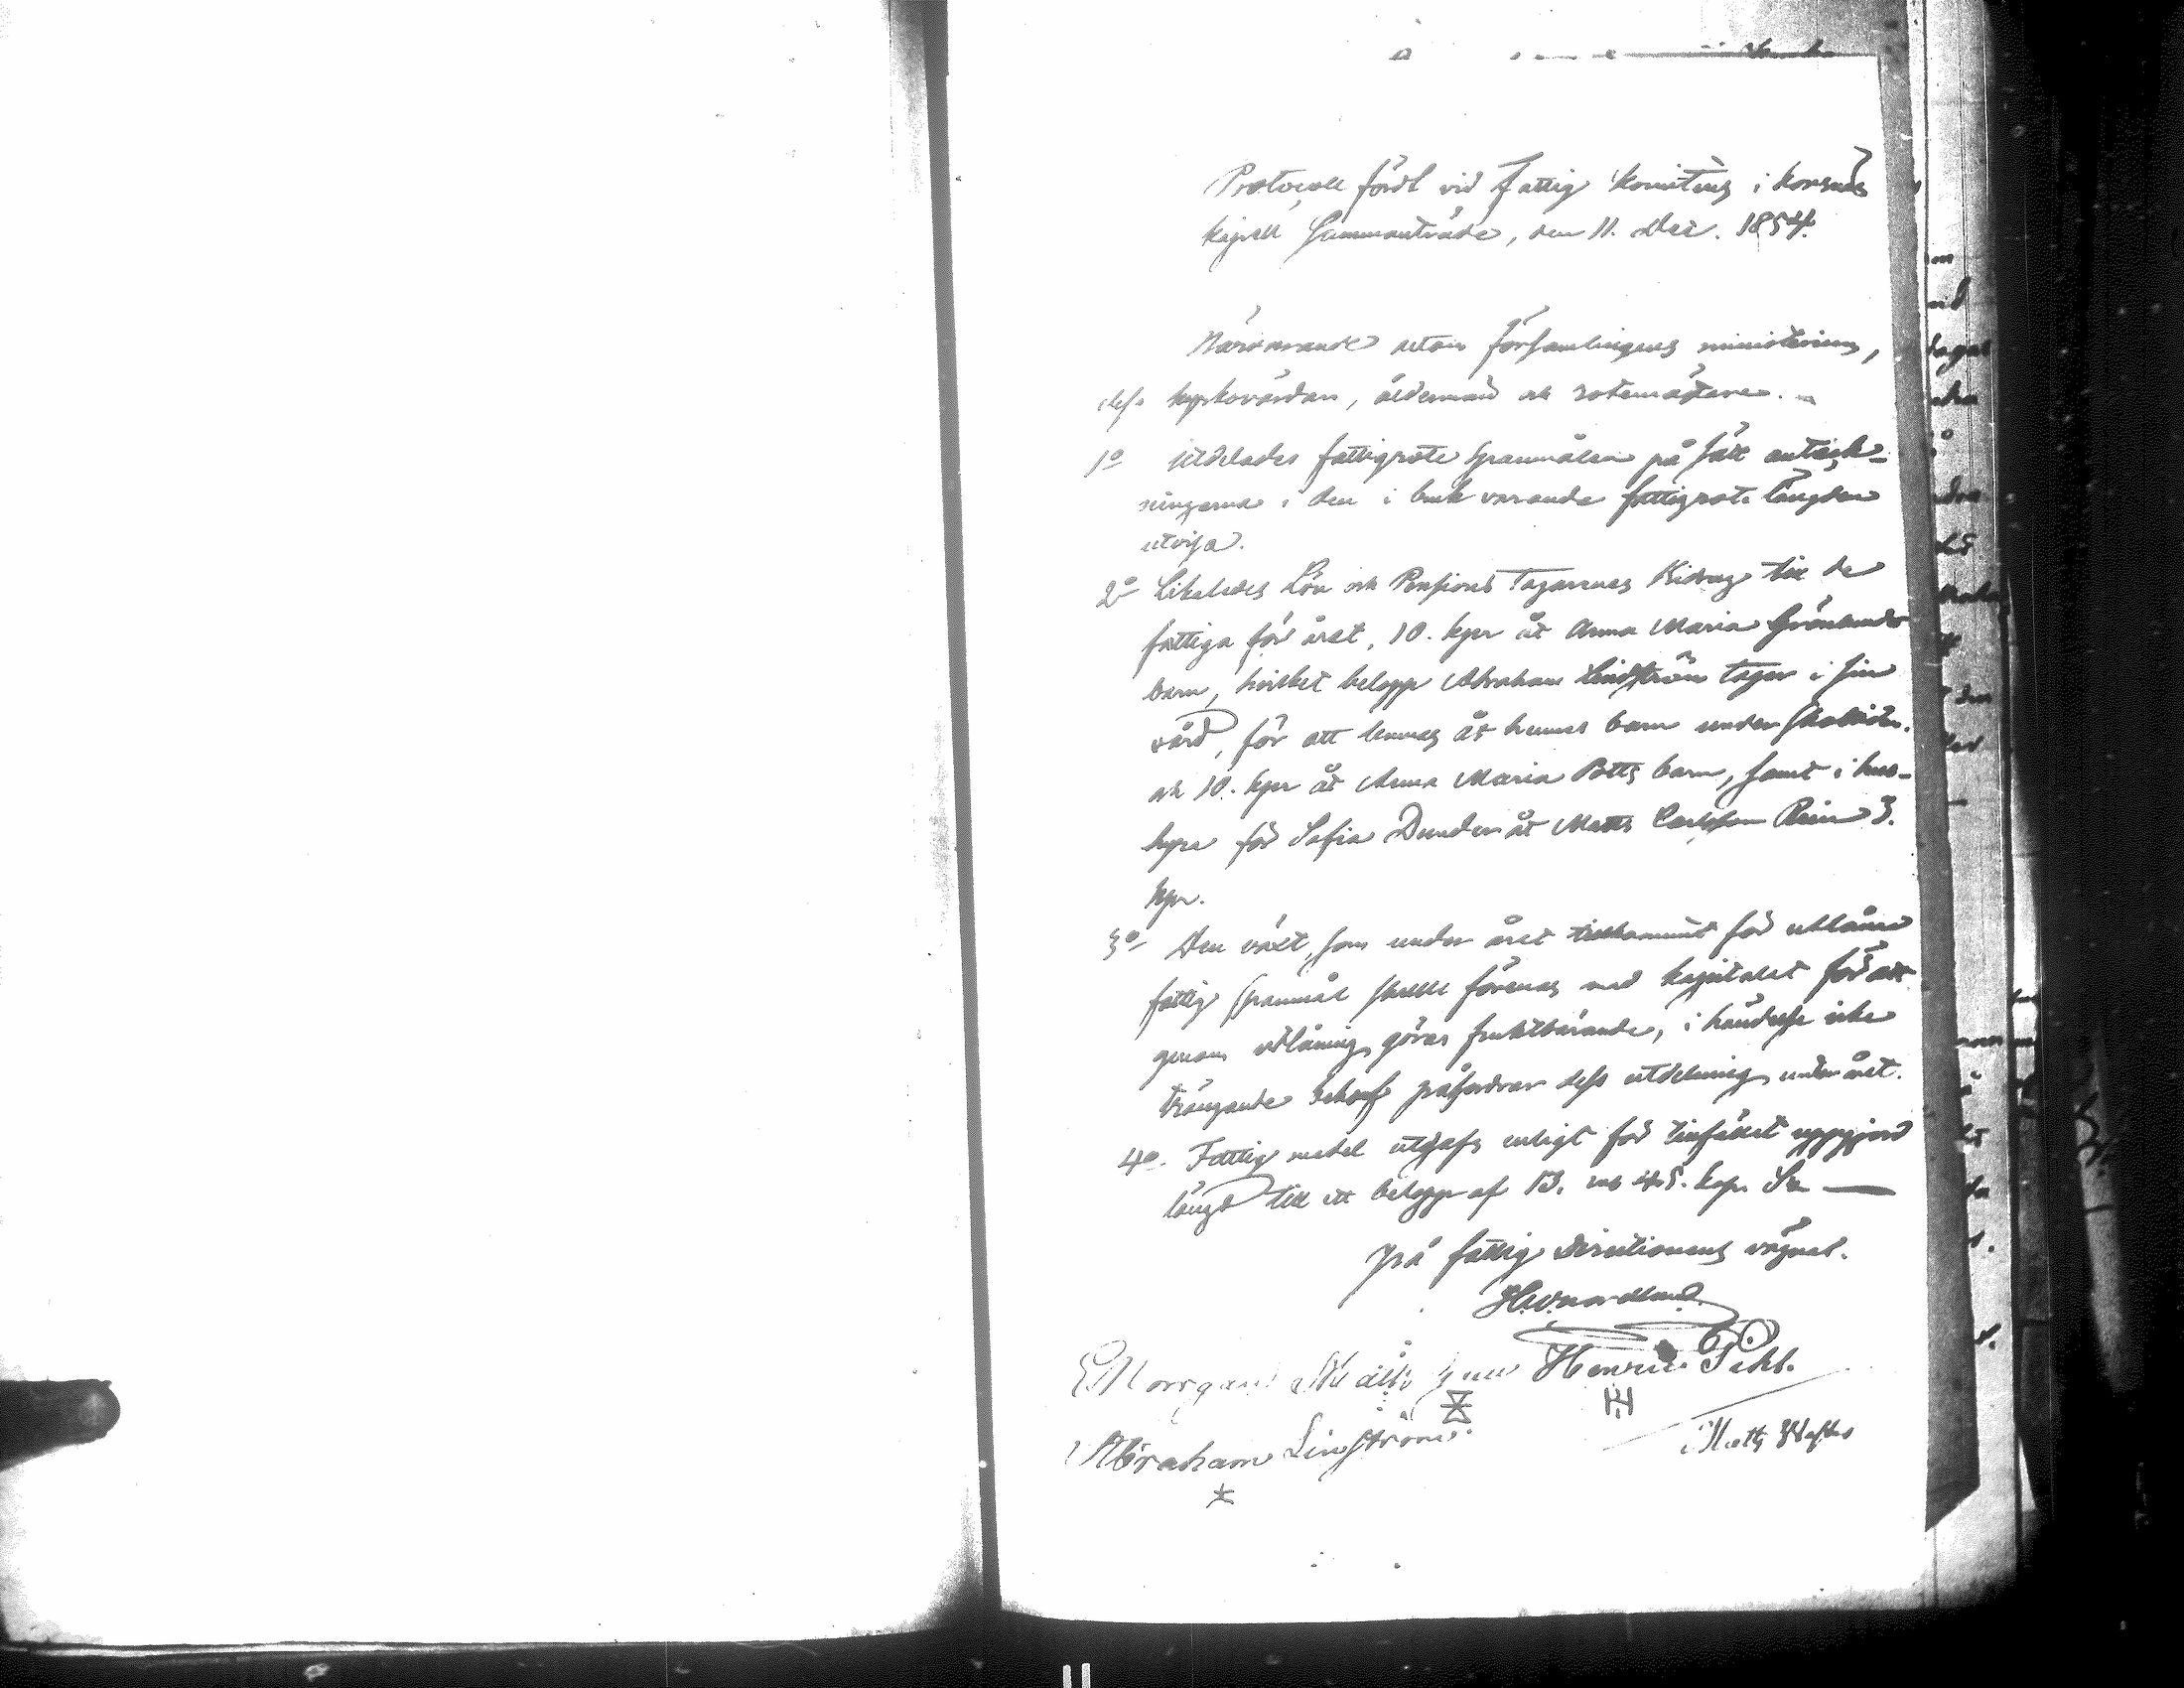 Protocoll fördt vid Fattig komitens i Korsnäs
kapell Sammanträde, den 11. Dec. 1854.
Närvarande utom församlingens ministerium,
dess kyrkovärdar, ålderman och rotemästare.
1o Utdelades fattigrote spanmålen på sätt anteck-
ningarna i den i bruk varande fattigrote längden
utvisa.
2o Likaledes Lön och Pensions Tagarenas Bidrag till de
fattiga för året, 10. kpr åt Anna Maria Grönlunds
barn, hvilket belopp Abraham Lindström tager i sin
vård, för att lemnas åt hennes barn under skoltiden.
och 10. kpr åt Anna Maria Potts barn, samt i hus-
hyra för Sofia Dunder åt Matts Carlsson Rein 3.
kpr.
3o Den växt, som under året tillkommit för utlånad
fattig spanmål skulle förenas med kapitalet för att
genom utlåning göras fruktbärande, i händelse icke
trängande behof påfordrar dess utdelning under året.
4o. Fattig medel utgafs enligt för tillfället uppgjord
längd till ett belopp af 13. rub 45. kop. Sr
På fattig Direktionens vägnar.
Nordlund
Morrgani Henric Pehl.
Abraham Linström
Matts